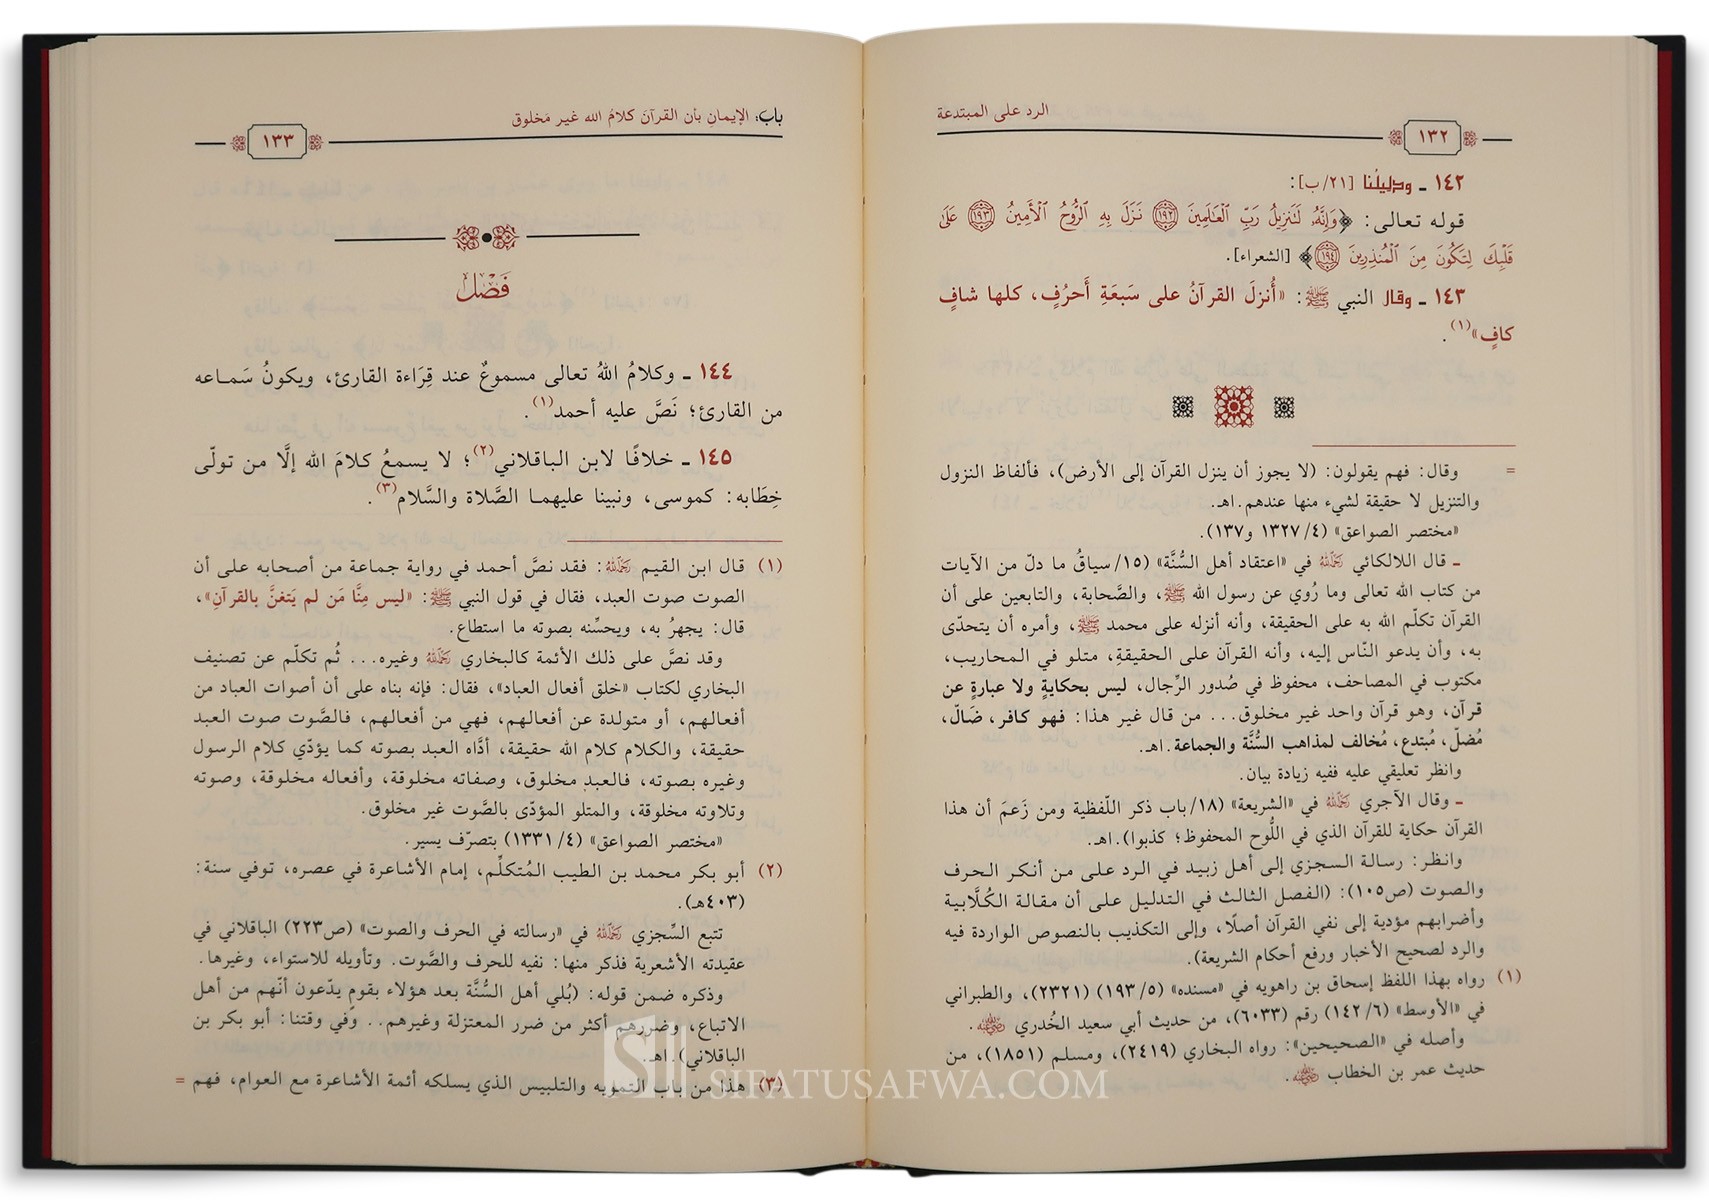 الرد على المبتدعة
١٣٢
١٤٢ ـ ودليلُنا [٢١/ب]:
قوله تعالى: ﴿وَإِنَّهُۥ لَتَنزِيلُ رَبِّ ٱلْعَٰلَمِينَ ١٩٢ نَزَلَ بِهِ ٱلرُّوحُ ٱلْأَمِينُ ١٩٣ عَلَىٰ
قَلْبِكَ لِتَكُونَ مِنَ ٱلْمُنذِرِينَ ١٩٤﴾ [الشعراء].
١٤٣ ـ وقال النبي ﷺ: «أُنزلَ القرآنُ على سَبعَةِ أَحرُفٍ، كلها شافٍ
كافٍ»(١).
= وقال: فهم يقولون: (لا يجوز أن ينزل القرآن إلى الأرض)، فألفاظ النزول
والتنزيل لا حقيقة لشيء منها عندهم.اهـ.
«مختصر الصواعق» (٤/ ١٣٢٧ و١٣٧).
ـ قال اللالكائي رحمه الله في «اعتقاد أهل السُّنَّة» (١٥/سياقُ ما دلّ من الآيات
من كتاب الله تعالى وما رُوي عن رسول الله ﷺ، والصَّحابة، والتابعين على أن
القرآن تكلّم الله به على الحقيقة، وأنه أنزله على محمد ﷺ، وأمره أن يتحدّى
به، وأن يدعو النّاس إليه، وأنه القرآن على الحقيقةِ، متلو في المحاريب،
مكتوب في المصاحف، محفوظ في صُدور الرِّجال، ليس بحكايةٍ ولا عبارةٍ عن
قرآن، وهو قرآن واحد غير مخلوق... من قال غير هذا: فهو كافر، ضَالّ،
مُضلّ، مُبتدع، مُخالف لمذاهب السُّنَّة والجماعة.اهـ.
وانظر تعليقي عليه ففيه زيادة بيان.
ـ وقال الآجري رحمه الله في «الشريعة» (١٨/باب ذكر اللّفظية ومن زَعمَ أن هذا
القرآن حكاية للقرآن الذي في اللُّوح المحفوظ؛ كذبوا).اهـ.
وانظر: رسالة السجزي إلى أهل زبيد في الرد على من أنكر الحرف
والصوت (ص١٠٥): (الفصل الثالث في التدليل على أن مقالة الكُلَّابية
وأضرابهم مؤدية إلى نفي القرآن أصلًا، وإلى التكذيب بالنصوص الواردة فيه
والرد لصحيح الأخبار ورفع أحكام الشريعة).
(١) رواه بهذا اللفظ إسحاق بن راهويه في «مسنده» (٥/ ١٩٣) (٢٣٢١)، والطبراني
في «الأوسط» (٦/ ١٤٢) رقم (٦٠٣٣)، من حديث أبي سعيد الخُدري رضي الله عنه.
وأصله في «الصحيحين»: رواه البخاري (٢٤١٩)، ومسلم (١٨٥١)، من
حديث عمر بن الخطاب رضي الله عنه.
باب: الإيمانِ بأن القرآنَ كلامُ الله غير مَخلوق
١٣٣
فَصْل
١٤٤ ـ وكلامُ اللهُ تعالى مسموعٌ عند قِرَاءة القارئ، ويكونُ سَماعه
من القارئ؛ نَصَّ عليه أحمد(١).
١٤٥ ـ خلافًا لابن الباقلاني(٢)؛ لا يسمعُ كلامَ الله إلَّا من تولّى
خِطَابه: كموسى، ونبينا عليهما الصَّلاة والسَّلام(٣).
(١) قال ابن القيم رحمه الله: فقد نصَّ أحمد في رواية جماعة من أصحابه على أن
الصوت صوت العبد، فقال في قول النبي ﷺ: «ليس مِنَّا مَن لم يَتغنَّ بالقرآنِ»،
قال: يجهرُ به، ويحسِّنه بصوته ما استطاع.
وقد نصَّ على ذلك الأئمة كالبخاري رحمه الله وغيره... ثُم تكلّم عن تصنيف
البخاري لكتاب «خلق أفعال العباد»، فقال: فإنه بناه على أن أصوات العباد من
أفعالهم، أو متولدة عن أفعالهم، فهي من أفعالهم، فالصَّوت صوت العبد
حقيقة، والكلام كلام الله حقيقة، أدَّاه العبد بصوته كما يؤدّي كلام الرسول
وغيره بصوته، فالعبد مخلوق، وصفاته مخلوقة، وأفعاله مخلوقة، وصوته
وتلاوته مخلوقة، والمتلو المؤدّى بالصَّوت غير مخلوق.
«مختصر الصواعق» (٤/ ١٣٣١) بتصرّف يسير.
(٢) أبو بكر محمد بن الطيب المُتكلِّم، إمام الأشاعرة في عصره، توفي سنة:
(٤٠٣هـ).
تتبع السِّجزي رحمه الله في «رسالته في الحرف والصوت» (ص٢٢٣) الباقلاني في
عقيدته الأشعرية فذكر منها: نفيه للحرف والصَّوت. وتأويله للاستواء، وغيرها.
وذكره ضمن قوله: (بُلي أهل السُّنَّة بعد هؤلاء بقومٍ يدّعون أنّهم من أهل
الاتباع، وضررهم أكثر من ضرر المعتزلة وغيرهم.. وفي وقتنا: أبو بكر بن
الباقلاني).اهـ.
(٣) هذا من باب التمويه والتلبيس الذي يسلكه أئمة الأشاعرة مع العوام، فهم =
SIFATUSAFWA.COM